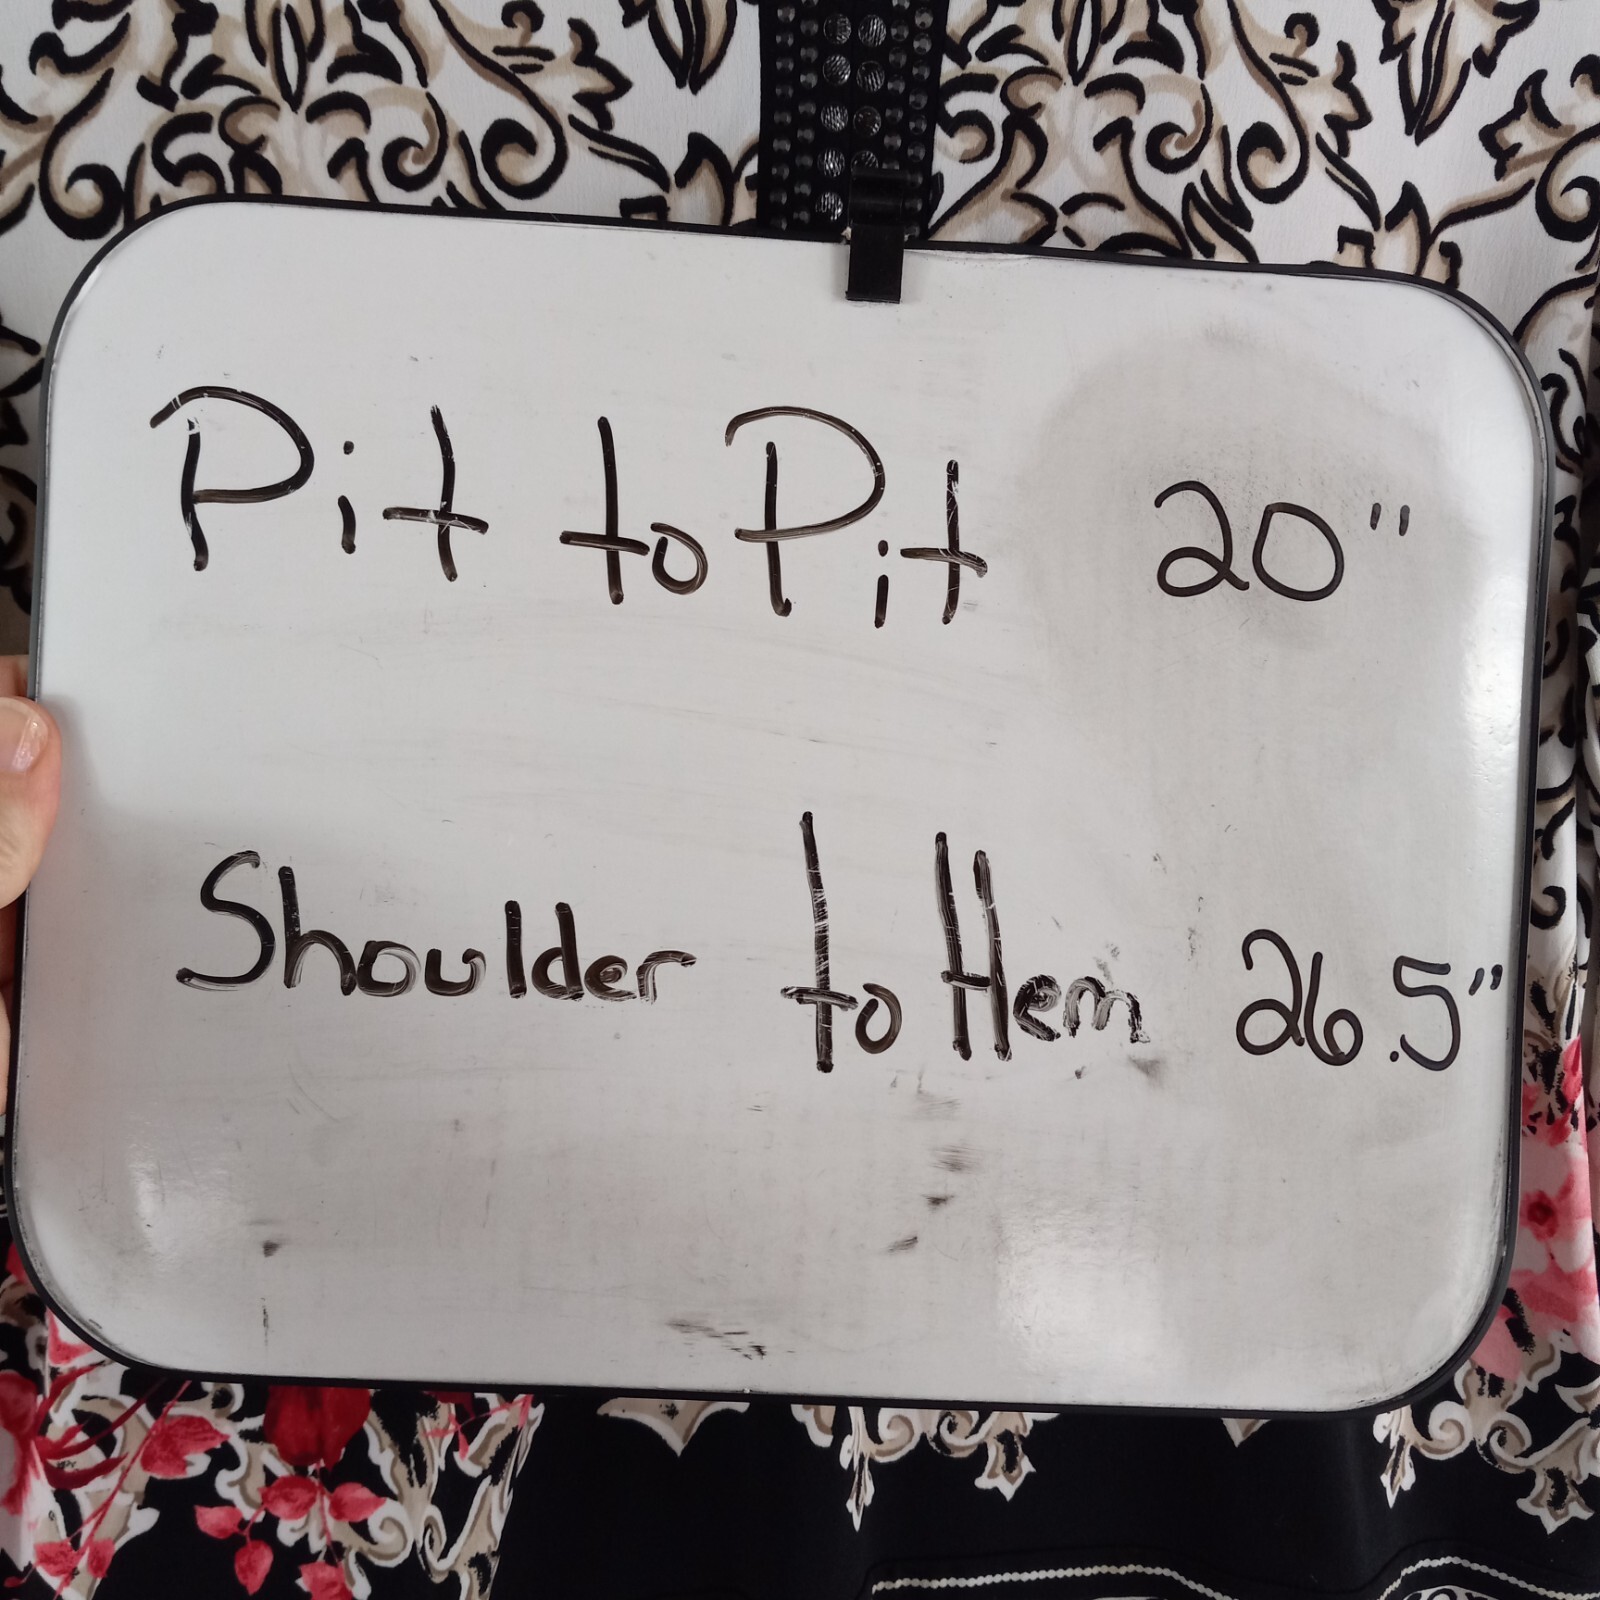 Pit to Pit 20"
Shoulder to Hem 26.5"